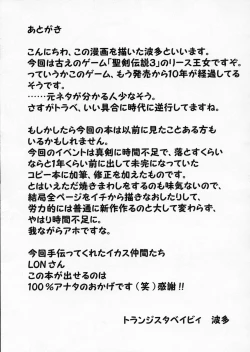 あとがき
こんにちわ、この漫画を描いた波多といいます。
今回は古えのゲーム「聖剣伝説3」のリース王女ですぞ。
っていうかこのゲーム、もう発売から10年が経過してる
そうです。
……元ネタが分かる人少なそう。
さすがトラベ、いい具合に時代に逆行してますね。
もしかしたら今回の本は以前に見たことある方も
いるかもしれません。
今回のイベントは真剣に時間不足で、落とすくらい
ならと1年くらい前に出して未完になっていた
コピー本に加筆、修正を加えたものです。
とはいえただ焼きまわしをするのも味気ないので、
結局全ページをイチから描きなおしたりして、
労力的には普通に新作作るのと大して変わらず、
やはり時間不足に。
我ながらアホですな。
今回手伝ってくれたイカス仲間たち
LONさん
この本が出せるのは
100%アナタのおかげです(笑)感謝!!
トランジスタベイビィ 波多